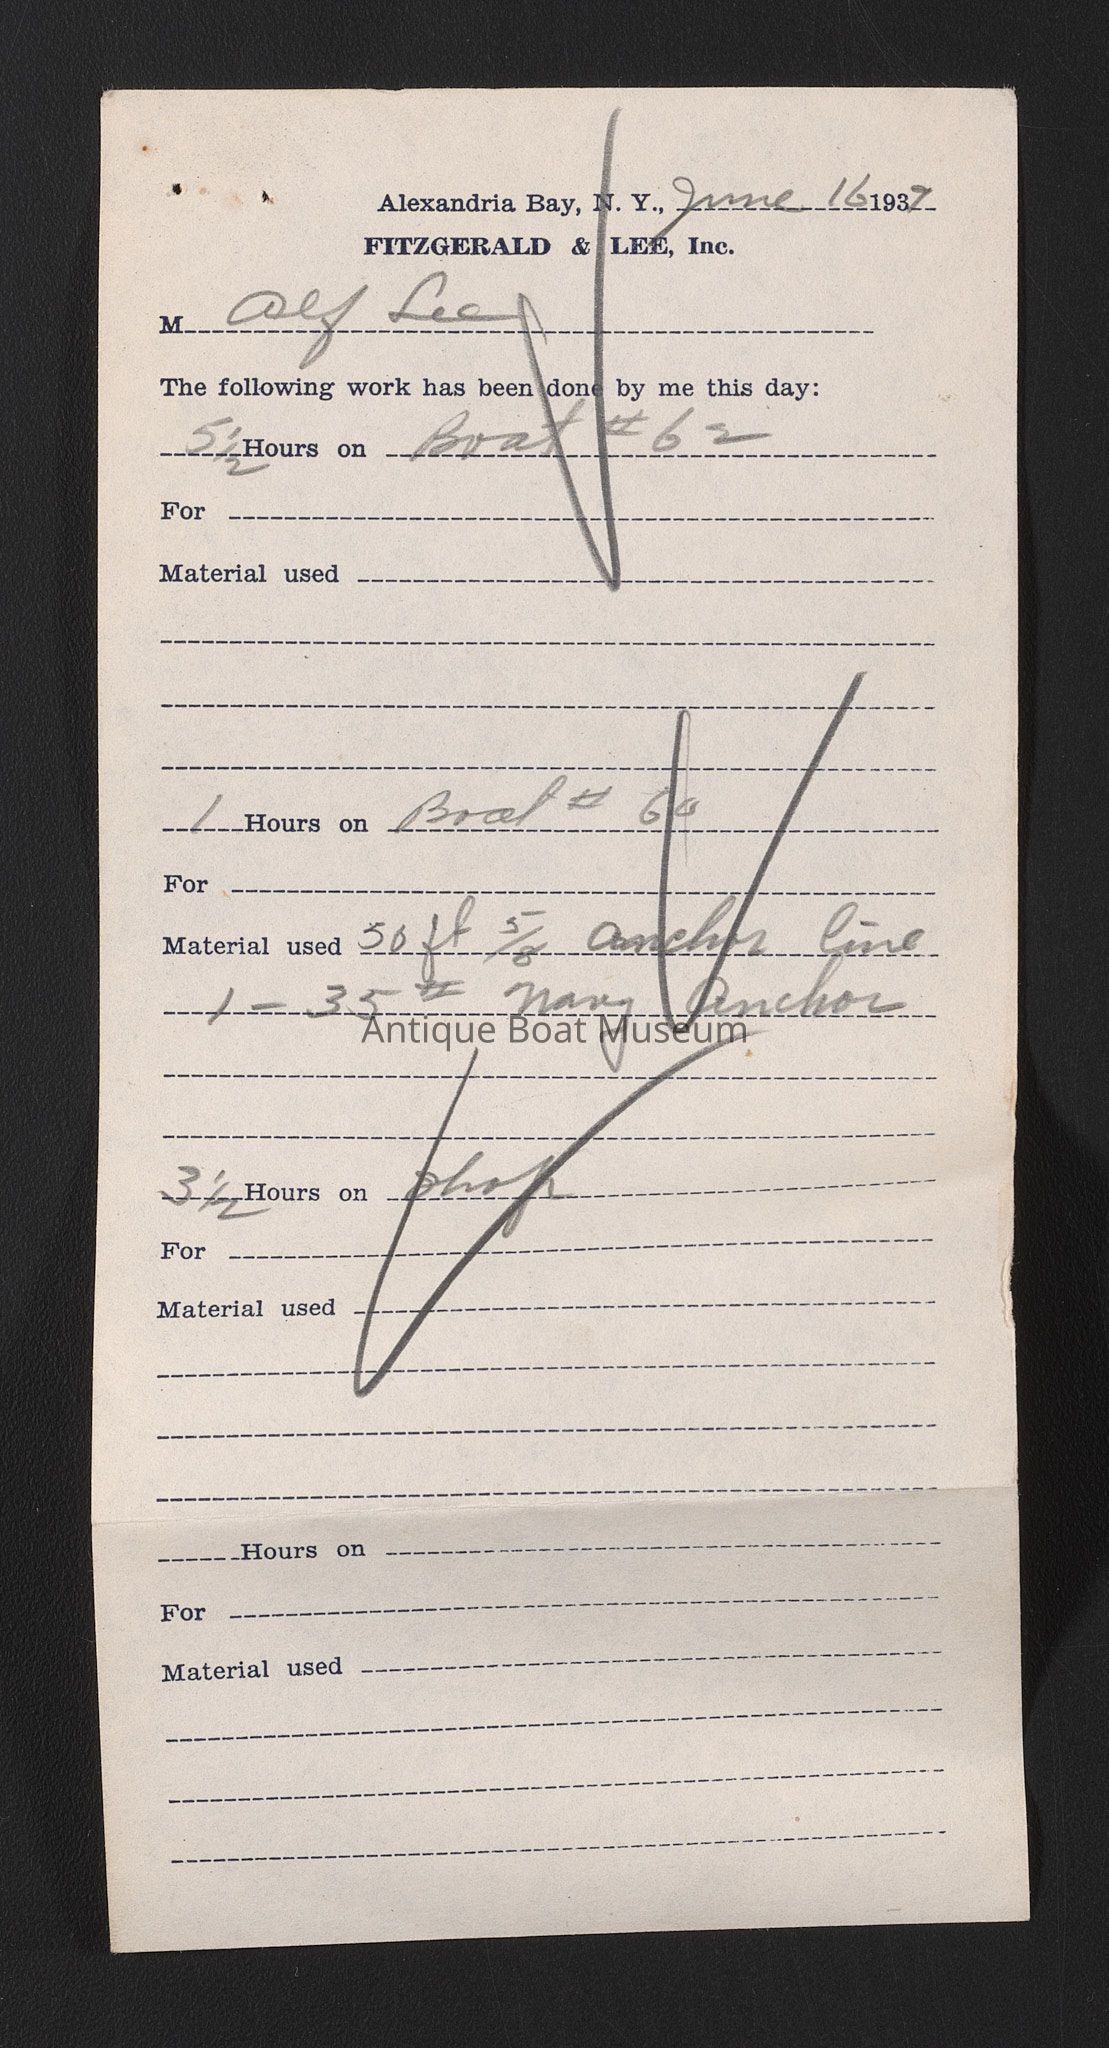 Alexandria Bay, N. Y., June 16 1937
FITZGERALD & LEE, Inc.
M Alf Lee
The following work has been done by me this day:
5½ Hours on Boat # 62
For
Material used
1 Hours on Boat # 60
For
Material used 50 ft 5/8 anchor line
1 - 35 # Navy Anchor
Antique Boat Museum
3½ Hours on Shop
For
Material used
Hours on
For
Material used